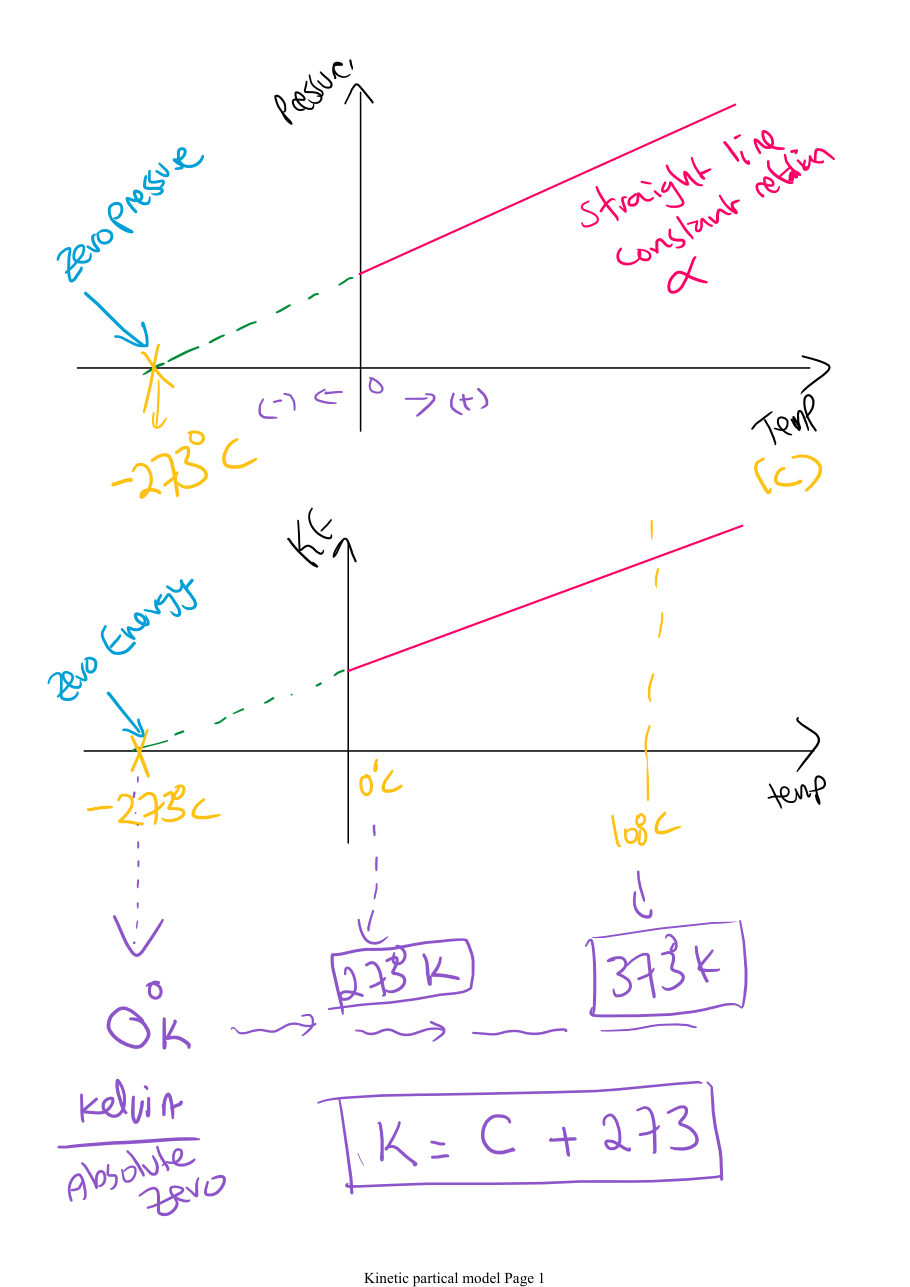 Pressure
Zero Pressure
straight line
constant relation
α
(-) ← 0 → (+)
Temp
(C)
-273°C
KE
Zero Energy
-273°C
0°C
100°C
temp
0°K
273°K
373°K
Kelvin
Absolute
Zero
K = C + 273
Kinetic partical model Page 1